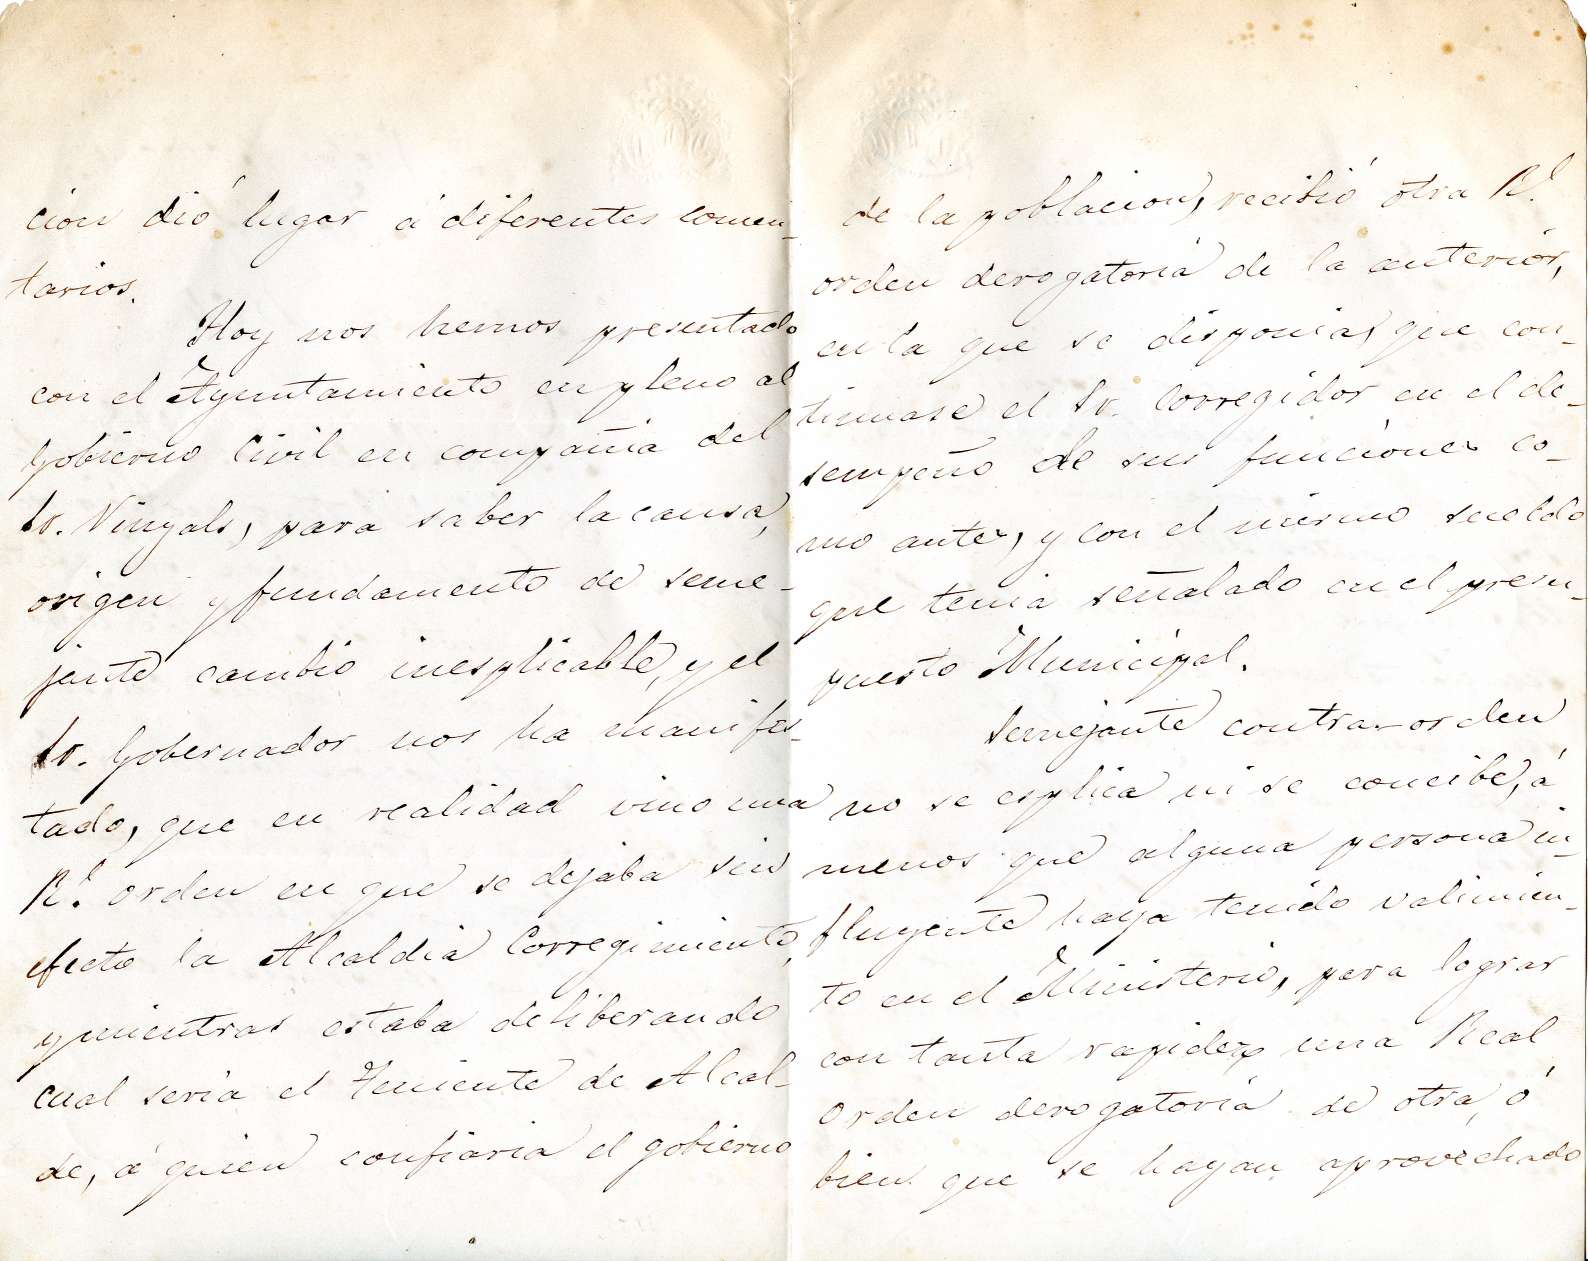 cion dió lugar á diferentes comen-
tarios.
Hoy nos hemos presentado
con el Ayuntamiento en pleno al
Gobierno Civil en compañia del
Sr. Vinyals, para saber la causa,
origen y fundamento de seme-
jante cambio inesplicable, y el
Sr. Gobernador nos ha manifes-
tado, que en realidad vino una
Rl. orden en que se dejaba sin
efecto la Alcaldia Corregimiento,
y mientras estaba deliberando
cual seria el Teniente de Alcal-
de, á quien confiaria el gobierno
de la poblacion, recibió otra Rl.
orden derogatoria de la anterior,
en la que se disponia, que con-
tinuase el Sr. Corregidor en el de-
sempeño de sus funciones co-
mo antes, y con el mismo sueldo
que tenia señalado en el presu-
puesto Municipal.
Semejante contra-orden
no se esplica ni se concibe, á
menos que alguna persona in-
fluyente haya tenido valimien-
to en el Ministerio, para lograr
con tanta rapidez una Real
Orden derogatoria de otra, ó
bien que se hayan aprovechado